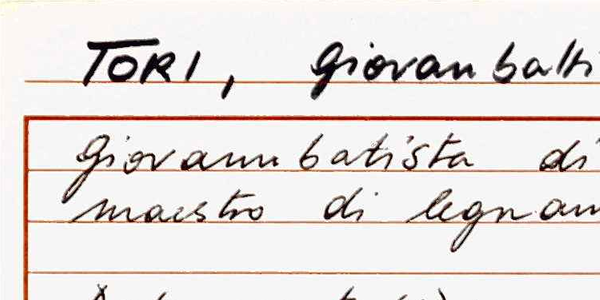 TORI, Giovanbatti
Giovannbatista di
maestro di legnam